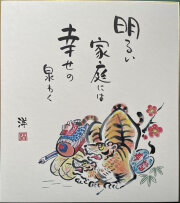 明るい
家庭には
幸せの
泉わく
洋